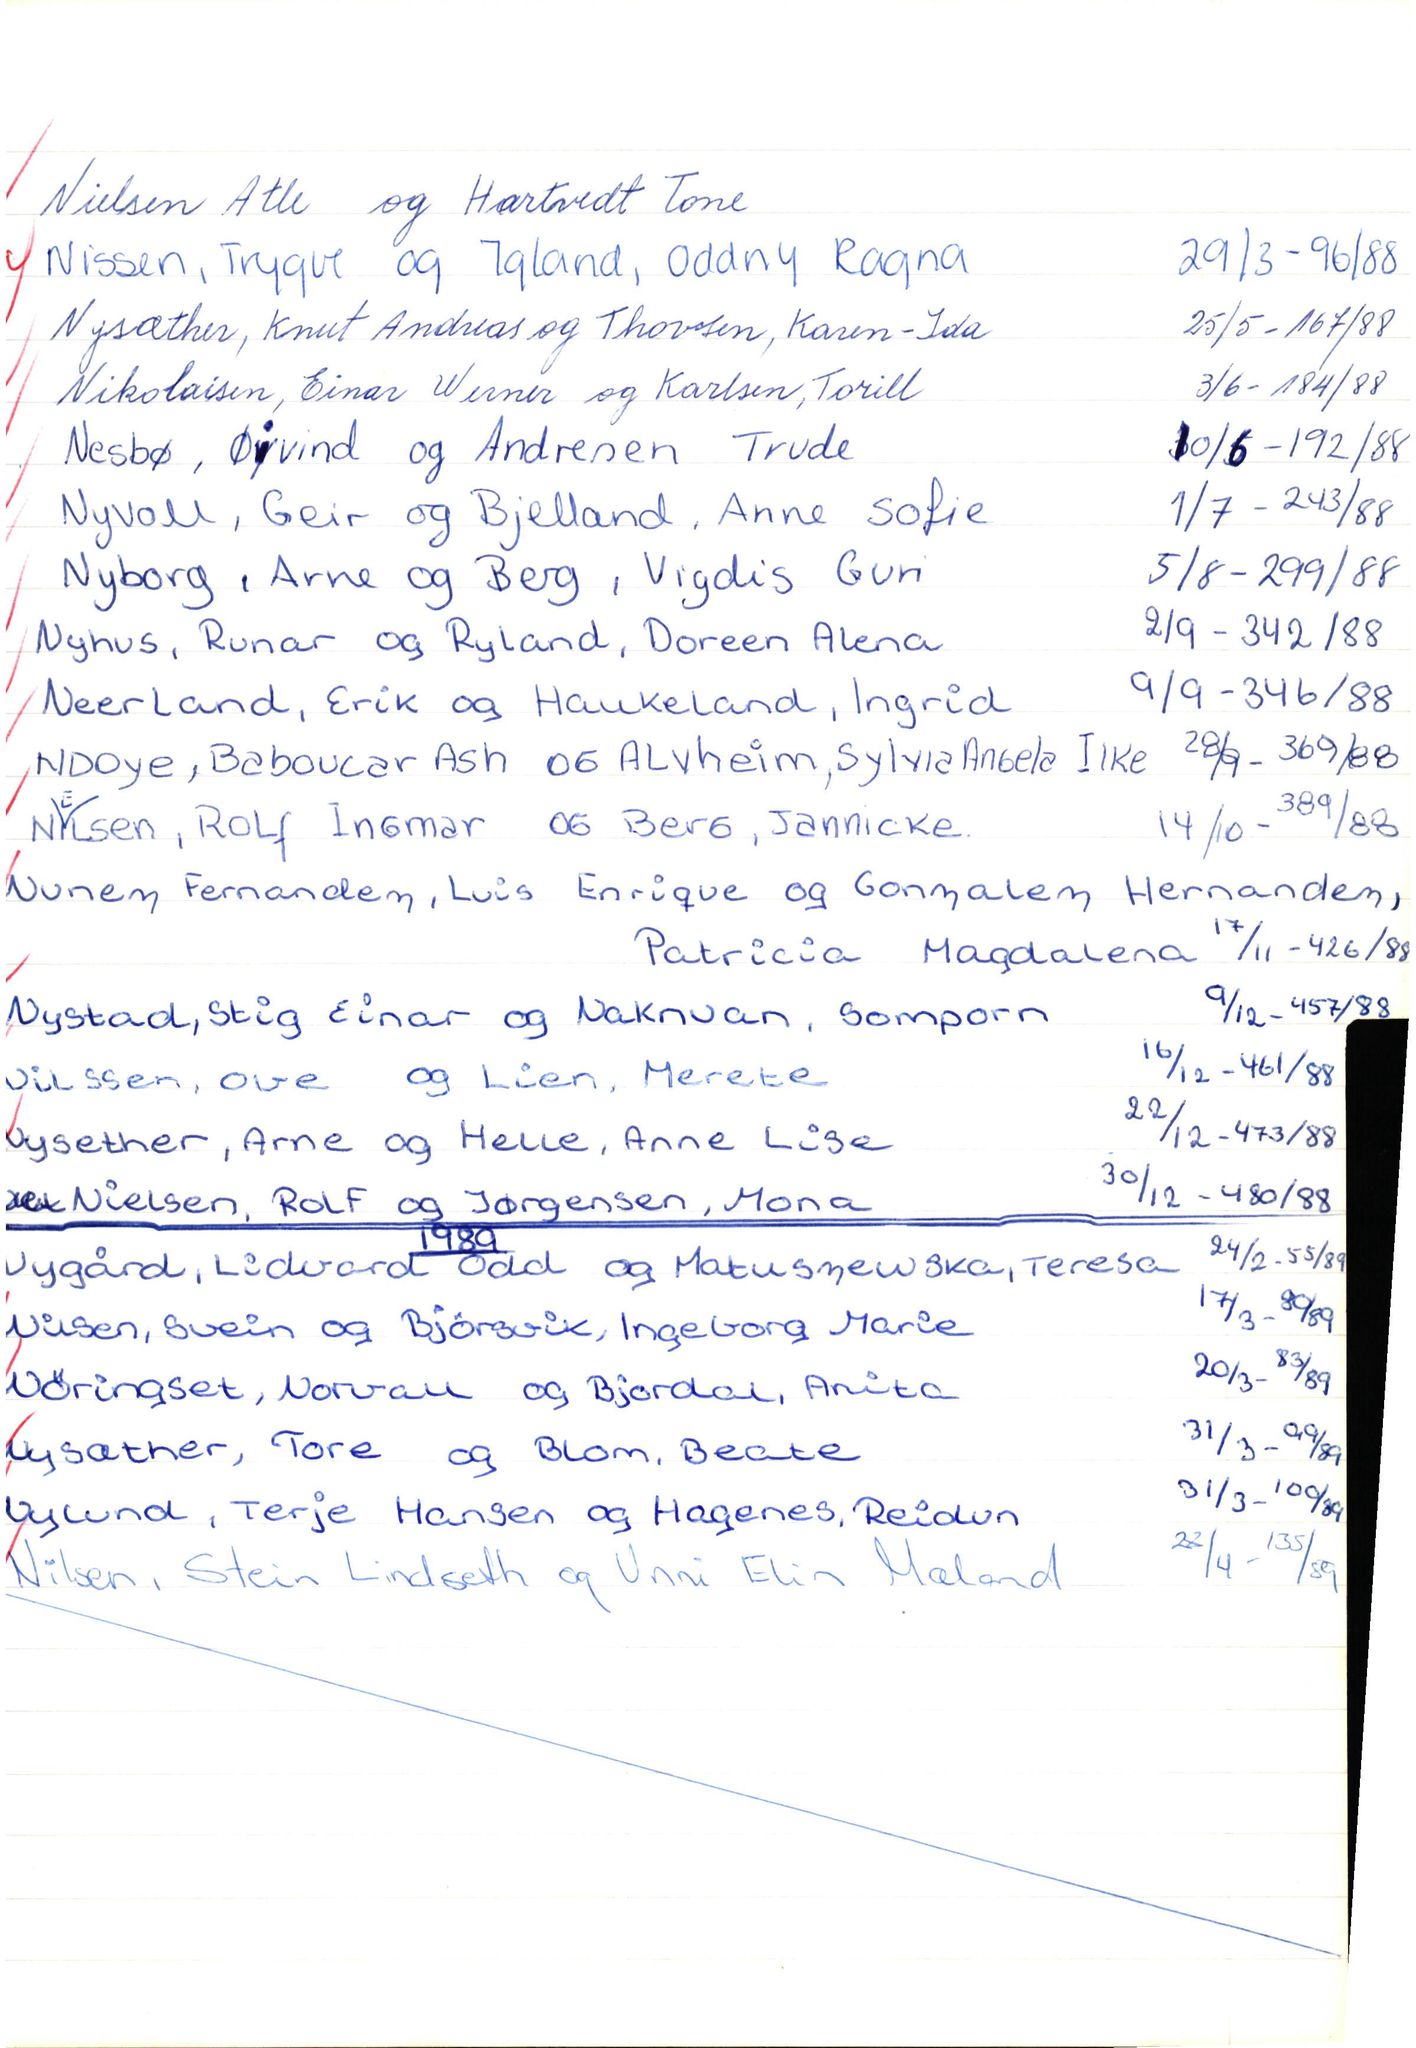 Nielsen Atle og Hartvedt Tone
Nissen, Trygve og Igland, Oddny Ragna 29/3 - 96/88
Nysæther, Knut Andreas og Thorsen, Karen-Ida 25/5 - 167/88
Nikolaisen, Einar Werner og Karlsen, Torill 3/6 - 184/88
Nesbø, Øyvind og Andresen Trude 10/6 - 192/88
Nyvoll, Geir og Bjelland, Anne Sofie 1/7 - 243/88
Nyborg, Arne og Berg, Vigdis Guri 5/8 - 299/88
Nyhus, Runar og Ryland, Doreen Alena 2/9 - 342/88
Neerland, Erik og Haukeland, Ingrid 9/9 - 346/88
NDOye, Baboucar Ash OG ALVheim, Sylvia Angela Ilke 28/9 - 369/88
Nilsen, Rolf Ingmar OG Berg, Jannicke. 14/10 - 389/88
Nunez Fernandez, Luis Enrique og Gonzalez Hernandez,
Patricia Magdalena 17/11 - 426/88
Nystad, Stig Einar og Naknuan, Somporn 9/12 - 457/88
Nilssen, Ove og Lien, Merete 16/12 - 461/88
Nysether, Arne og Helle, Anne Lise 22/12 - 473/88
Nielsen, Rolf og Jørgensen, Mona 30/12 - 480/88
1989
Nygård, Lidvard Odd og Matuszewska, Teresa 24/2 - 55/89
Nilsen, Svein og Björsvik, Ingeborg Marie 17/3 - 80/89
Nöringset, Norvall og Bjordal, Anita 20/3 - 83/89
Nysæther, Tore og Blom, Beate 31/3 - 99/89
Nylund, Terje Hansen og Hagenes, Reidun 31/3 - 100/89
Nilsen, Stein Lindseth og Unni Elin Mæland 22/4 - 135/89